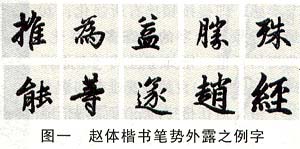 推為益勝殊
能等遂趙經
图一 赵体楷书笔势外露之例字